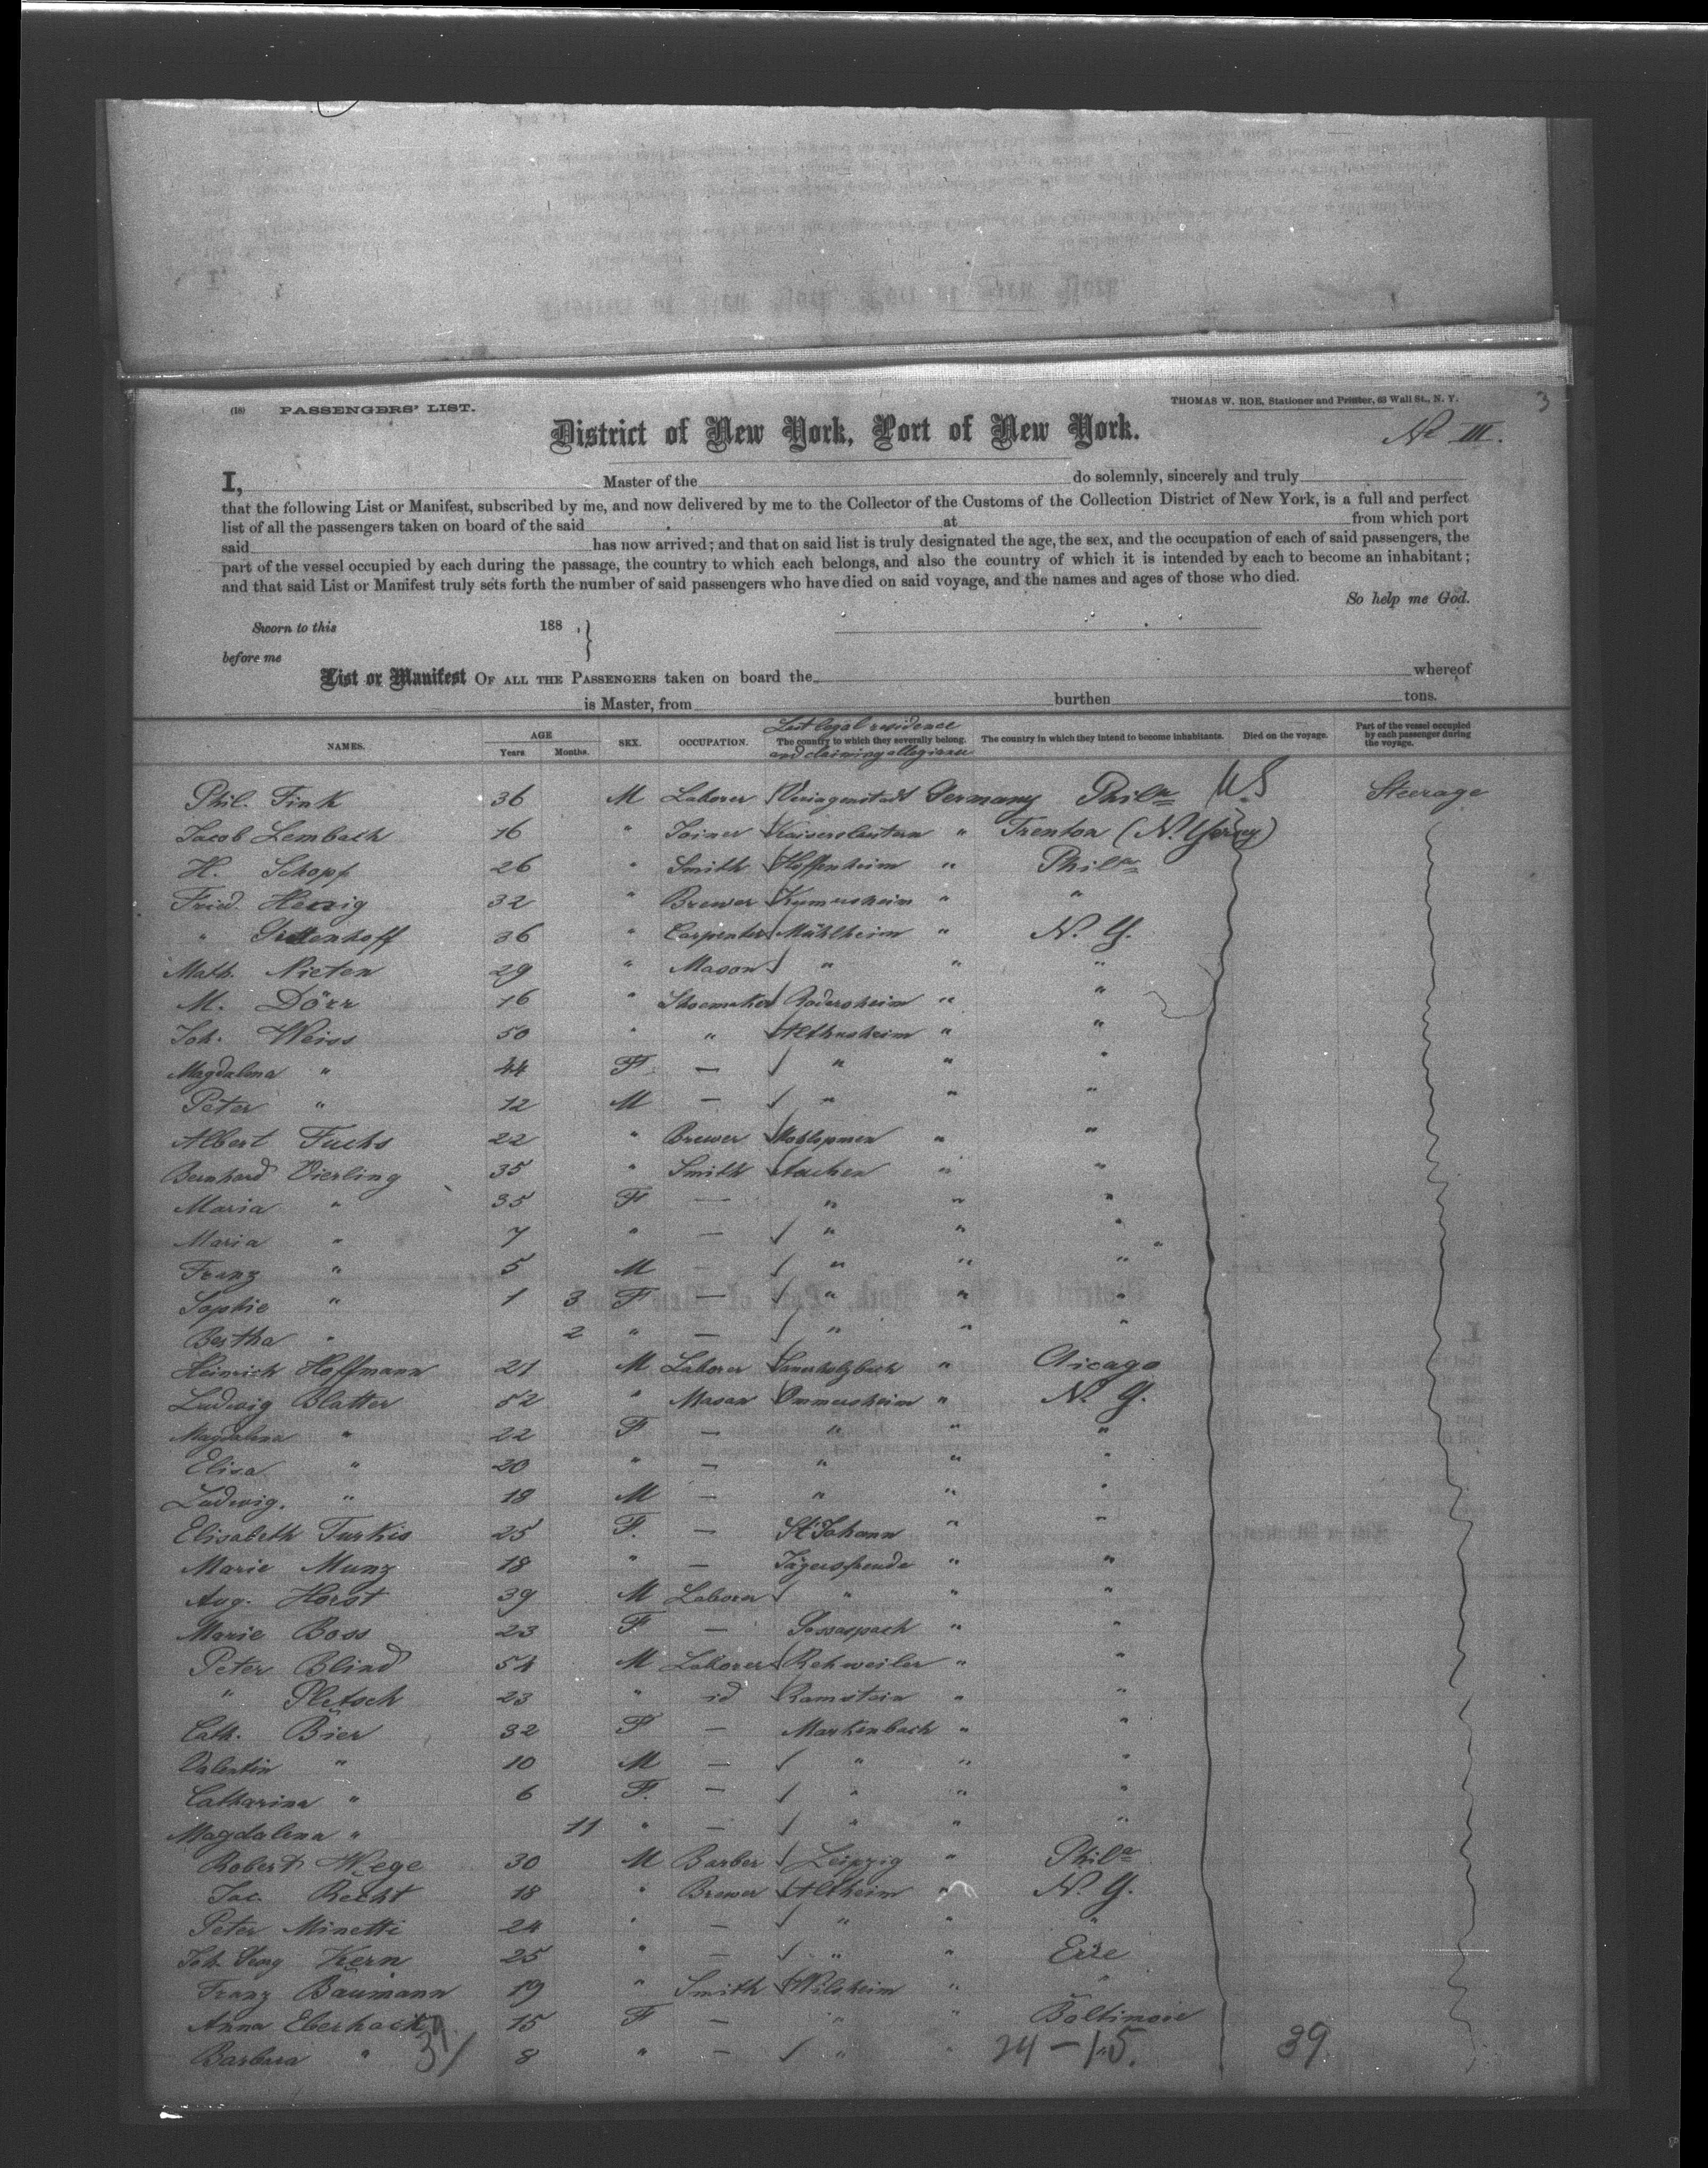 3
(18) PASSENGERS' LIST. THOMAS W. ROE, Stationer and Printer, 63 Wall St., N. Y.
District of New York, Port of New York. No III.
I, Master of the do solemnly, sincerely and truly
that the following List or Manifest, subscribed by me, and now delivered by me to the Collector of the Customs of the Collection District of New York, is a full and perfect
list of all the passengers taken on board of the said at from which port
said has now arrived; and that on said list is truly designated the age, the sex, and the occupation of each of said passengers, the
part of the vessel occupied by each during the passage, the country to which each belongs, and also the country of which it is intended by each to become an inhabitant;
and that said List or Manifest truly sets forth the number of said passengers who have died on said voyage, and the names and ages of those who died.
So help me God.
Sworn to this 188 , }
before me
List or Manifest OF ALL THE PASSENGERS taken on board the whereof
is Master, from burthen tons.
Last legal residence
NAMES. AGE Years Months. SEX. OCCUPATION. The country to which they severally belong. The country in which they intend to become inhabitants. Died on the voyage. Part of the vessel occupied by each passenger during the voyage.
and claiming allegiance
Phil. Fink 36 M Laborer Veringenstadt Germany Phila US Steerage
Jacob Lembach 16 " Joiner Kaiserslautern " Trenton (N. Yersey)
H. Schopf 26 " Smith Hoffenheim " Phila
Fried. Herzig 32 " Brewer " "
" 36 " Carpenter Mühlheim " N. Y.
Math. Nieten 29 " Mason " " "
M. Dörr 16 " Shoemaker Rodersheim " "
Joh. Weiss 50 " " " "
Magdalena " 44 F — " " "
Peter " 12 M — " " "
Albert Fuchs 22 " Brewer " "
Bernhard Vierling 35 " Smith Aachen " "
Maria " 35 F — " " "
Maria " 7 " — " " "
Franz " 5 M — " " "
Sophie " 1 3 F — " " "
Bertha " 2 " — " " "
Heinrich Hoffmann 21 M Laborer " Chicago
Ludwig Blatter 52 " Mason Ommersheim " N. Y.
Magdalena " 22 F — " " "
Elisa " 20 " — " " "
Ludwig. " 18 M — " " "
Elisabeth Turkis 25 F. — St Johann " "
Marie Munz 18 " — Jägersfreude " "
Aug. Horst 39 M Laborer " " "
Marie Boss 23 F — " "
Peter Blind 54 M Laborer Rehweiler " "
" Pletsch 23 " id Ramstein " "
Cath. Bier 32 F — Markenbach " "
Valentin " 10 M — " " "
Catharina " 6 F. — " " "
Magdalena " 11 " — " " "
Robert Wege 30 M Barber Leipzig " Phila
Jac. Recht 18 " Brewer Altheim " N. Y.
Peter Minetti 24 " — " " "
Joh. Georg Kern 25 " — " " Erie
Franz Baumann 19 " Smith " "
Anna 15 F — " " Baltimore
Barbara " 8 " — " " 24 — 15. 39